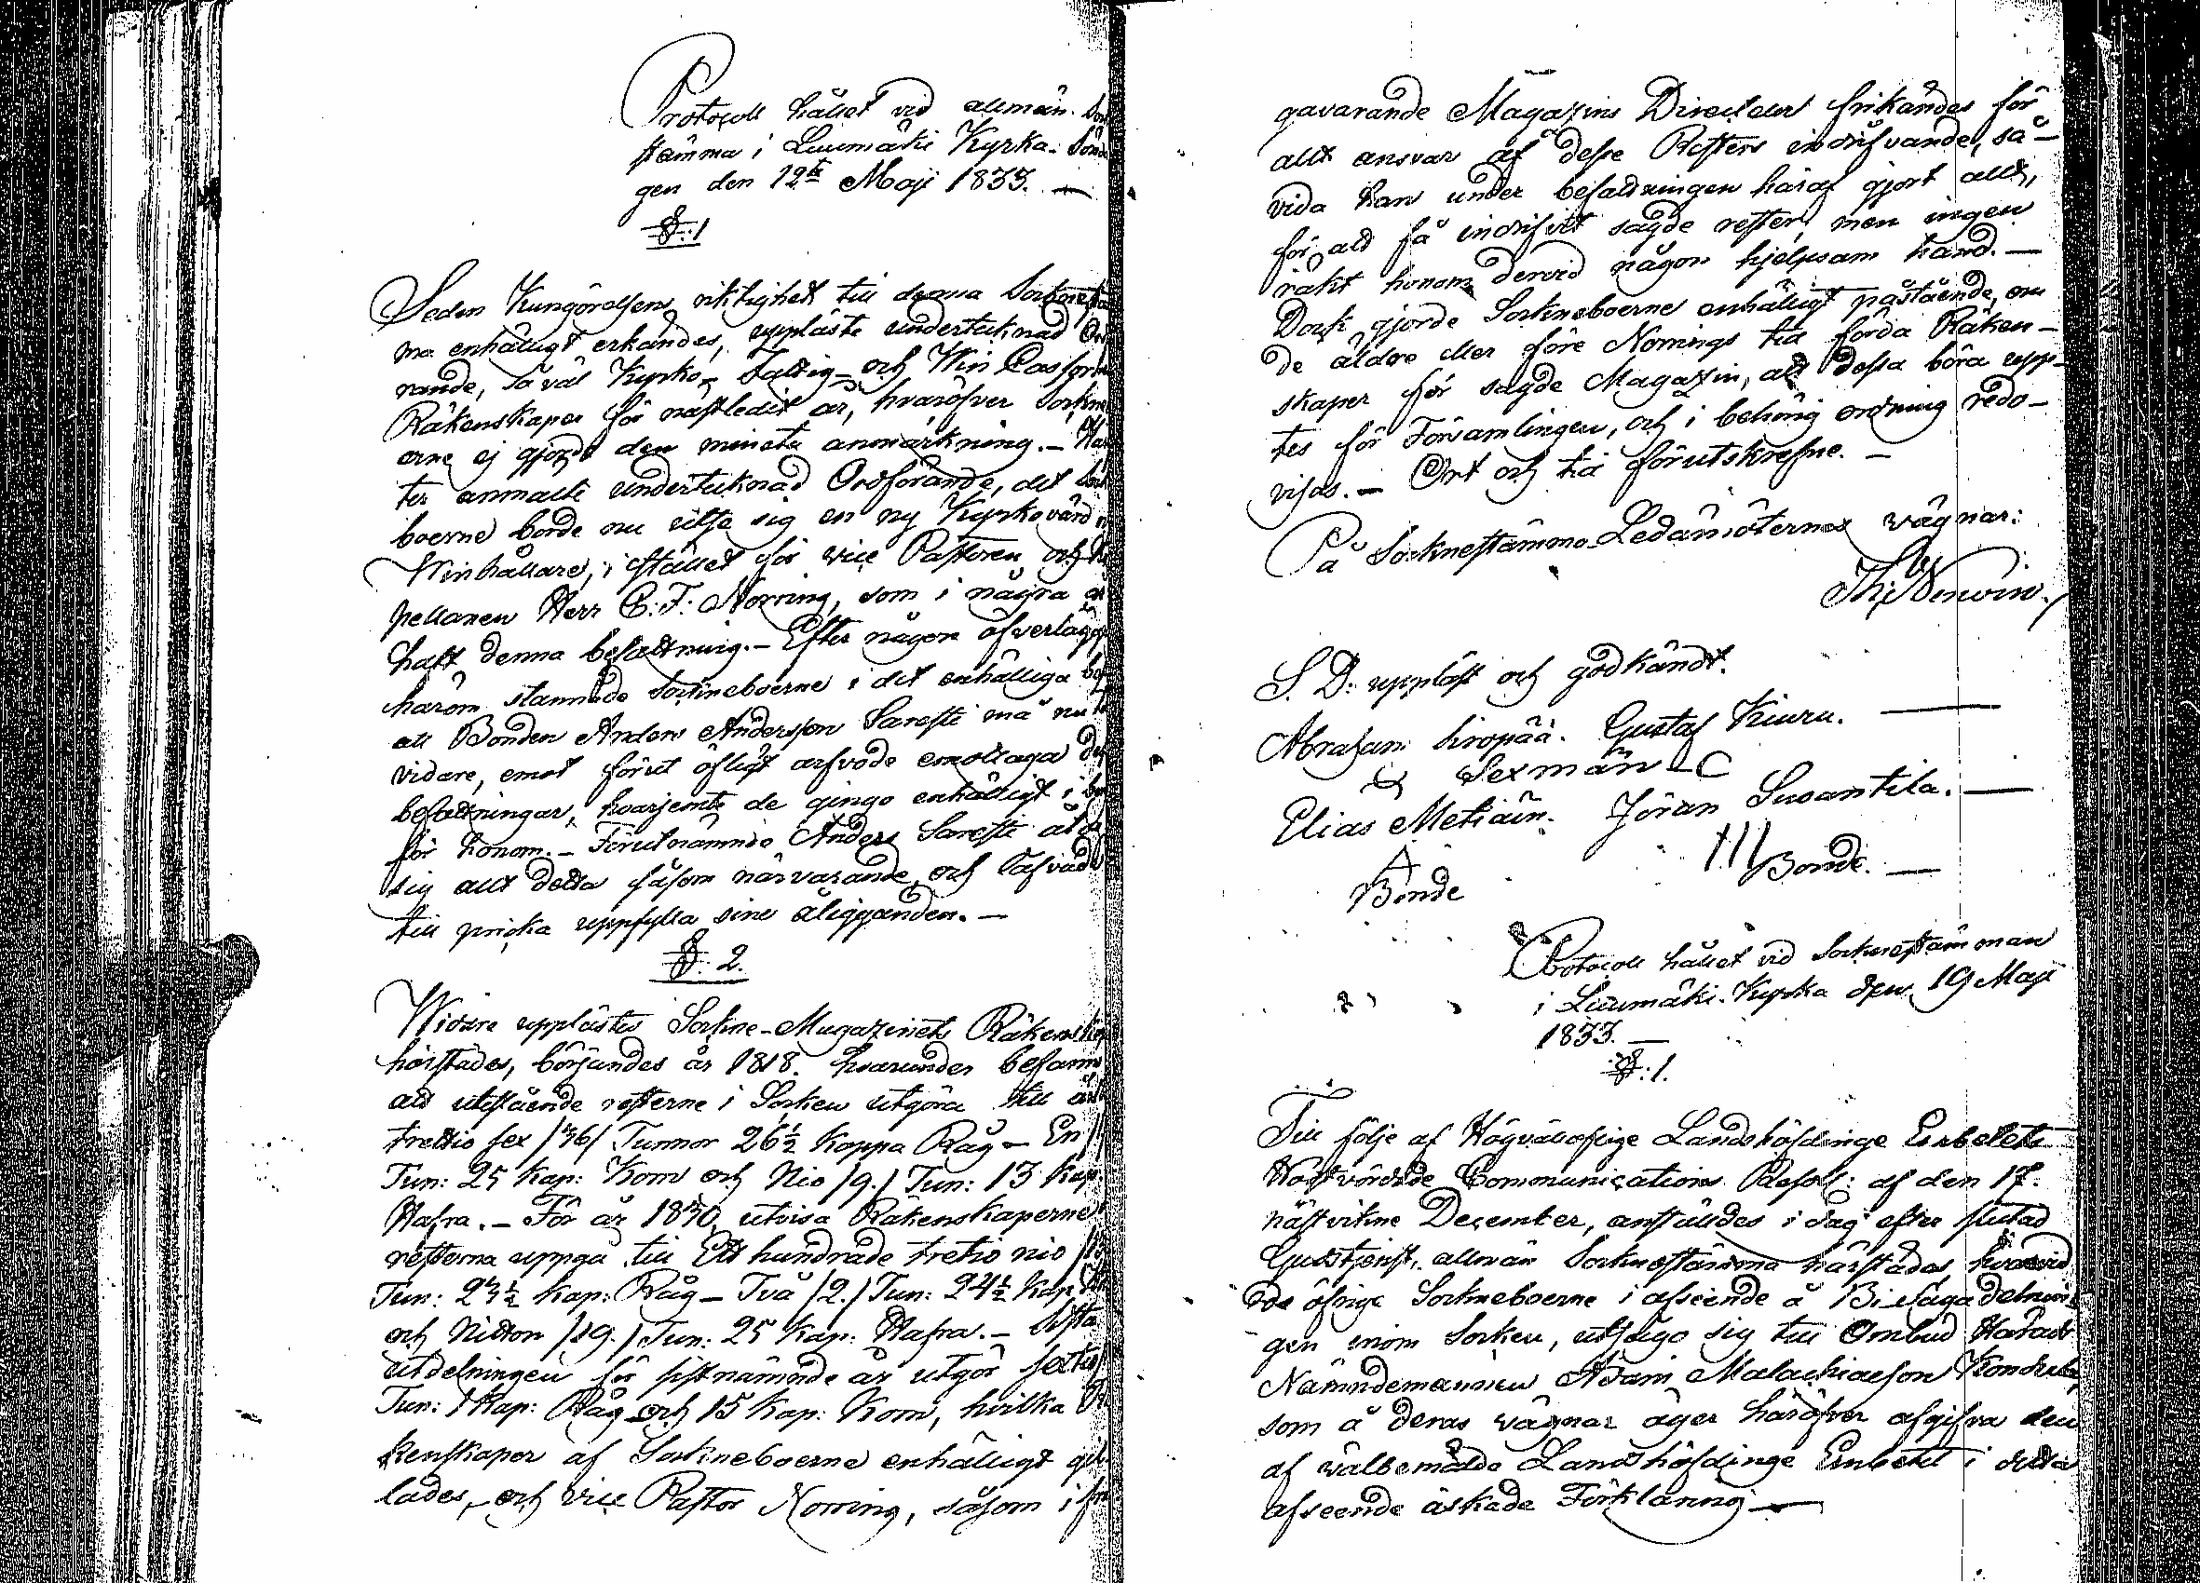 Protocoll hållet vid allmän Sock
stämma i Luumäki Kyrka Sönda
gen den 12te Maji 1833. —
§:1
Sedan Kungörelsens riktighet till denna Sockneståm
ma enhälligt erkändes, upplästе undertecknad Ord
rande, så väl Kyrko-, Fattig- och Win Cassorn
Räkenskaper för nästledit år, hvaröfver Sockne
erne ej gjorde den minsta anmärkning. — Här
ter anmälte undertecknad Ordförande, det Sock
boerne borde nu utse sig en ny Kyrkovärd
Winhållare, i stället för vice Pastoren och
pellanen Herr C: F: Norring, som i några år
haft denna befattning. — Efter någon öfverlägg
härom stannade Sockneboerne i det enhälliga bes
att Bonden Anders Andersson Sareste må nu
vidare, emot förut öfligt arfvode emottaga de
befattningar, hvarjemte de gingo enhälligt i bo
för honom. — Förutnämnde Anders Sareste åto
sig allt detta såsom närvarande, och låfvade
till pricka uppfylla sine åligganden. —
§: 2.
Widare upplästes Sockne-Magazinets Räkenskap
härstädes, börjandes år 1818. hvarunder befanns
att utestående resterne i Socken utgöra till
trettio sex /36/ Tunnor 26½ Kappa Råg — En /1
Tun: 25 Kap: Korn och Nio /9./ Tun: 13 Kap
Hafra. — För år 1830, utvisa Räkenskaperne
resterna uppgå till Ett hundrade tretio nio /13
Tun: 23½ Kap: Råg — Två /2./ Tun: 24½ Kap:
och Nitton /19./ Tun: 25 Kap: Hafra. — Sista
utdelningen för sistnämnde år utgör sextio
Tun: 1 Kap: Råg och 15 Kap: Korn, hvilka Rä
kenskaper af Sockneboerne enhälligt gil
lades, och vice Pastor Norring, såsom i fr
gavarande Magazins Directeur frikändes för
allt ansvar af desse Resters indrifvande, så-
vida han under befattningen häraf gjort allt,
för att få indrifvit sagde rester, men ingen
räkt honom dervid någon hjelpsam hand. —
Dock gjorde Sockneboerne enhälligt påstående, om
de äldre eller före Norrings tid förda Räken-
skaper för sagde Magazin, att dessa böra upp-
tes för Församlingen, och i behörig ordning redo-
visas. — Ort och tid förutskrefne. —
På Sockneståmmo Ledamöternas wägnar:
S. D. uppläst och godkändt.
Abraham Kropää. Gustaf Kiuru. —
Sexmän
Elias Metiäin. Jöran Suvantila. —
Bonde
Bonde. —
Protocoll hållet vid Sockneståmman
i Luumäki Kyrka den 19 Maji
1833. —
§:1.
Till följe af Högvälloflige Landshöfdinge Embetets
Högtvördade Communications Resol: af den 17.
nästvikne December, anställdes i dag efter slutad
Gudstjenst, allmän Sockneståmma härstädes, hvarvid
de öfrige Sockneboerne i afseende å Bi-Vägadelnin-
gen inom Socken, utsågo sig till Ombud Härads
Nämndemannen Adam Malachiaeson
som å deras wägnar äger häröfver afgifva den
af wälbemälde Landshöfdinge Embetet i detta
afseende äskade Förklaring —